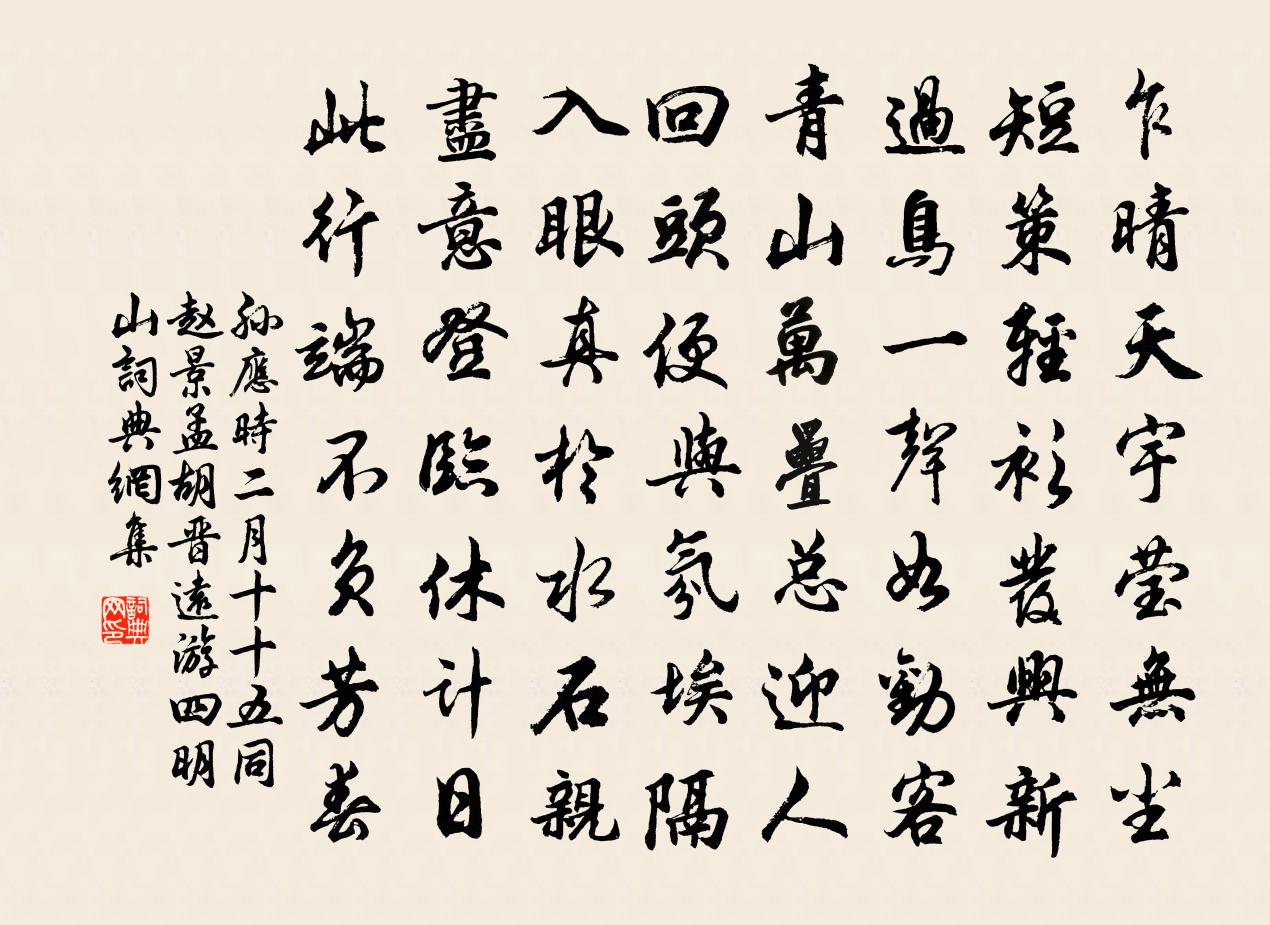 乍晴天宇莹無尘
短策輕衫發興新
過鳥一聲如勸客
青山萬疊总迎人
回頭便與氛埃隔
入眼真於水石親
盡意登臨休计日
此行端不负芳春
孙應時二月十十五同
赵景孟胡晋遠游四明
山詞典網集
詞典
网印